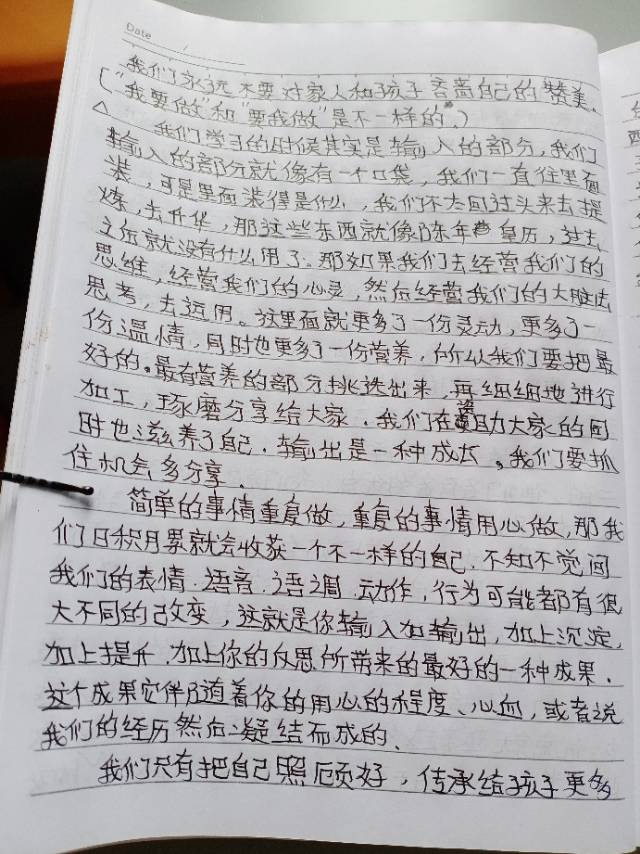 Date
我们永远不要对家人和孩子吝啬自己的赞美.
(“我要做”和“要我做”是不一样的。)
△ 我们学习的时候其实是输入的部分,我们
输入的部分就像有一个口袋,我们一直往里面
装,可是里面装得是什么,我们不去回过头来去提
炼,去升华,那这些东西就像陈年皇历,过去
之后就没有什么用了.那如果我们去经营我们的
思维,经营我们的心灵,然后经营我们的大脑去
思考,去运用。这里面就更多了一份灵动,更多了一
份温情,同时也更多了一份营养,所以我们要把最
好的。最有营养的部分挑选出来,再细细地进行
加工,琢磨分享给大家.我们在资助大家的同
时也滋养了自己.输出是一种成长。我们要抓
住机会多分享.
简单的事情重复做,重复的事情用心做,那我
们日积月累就会收获一个不一样的自己.不知不觉间
我们的表情.语音.语调.动作,行为可能都有很
大不同的改变,这就是你输入加输出,加上沉淀,
加上提升.加上你的反思所带来的最好的一种成果.
这个成果它伴随着你的用心的程度、心血,或者说
我们的经历然后凝结而成的.
我们只有把自己照顾好,传承给孩子更多